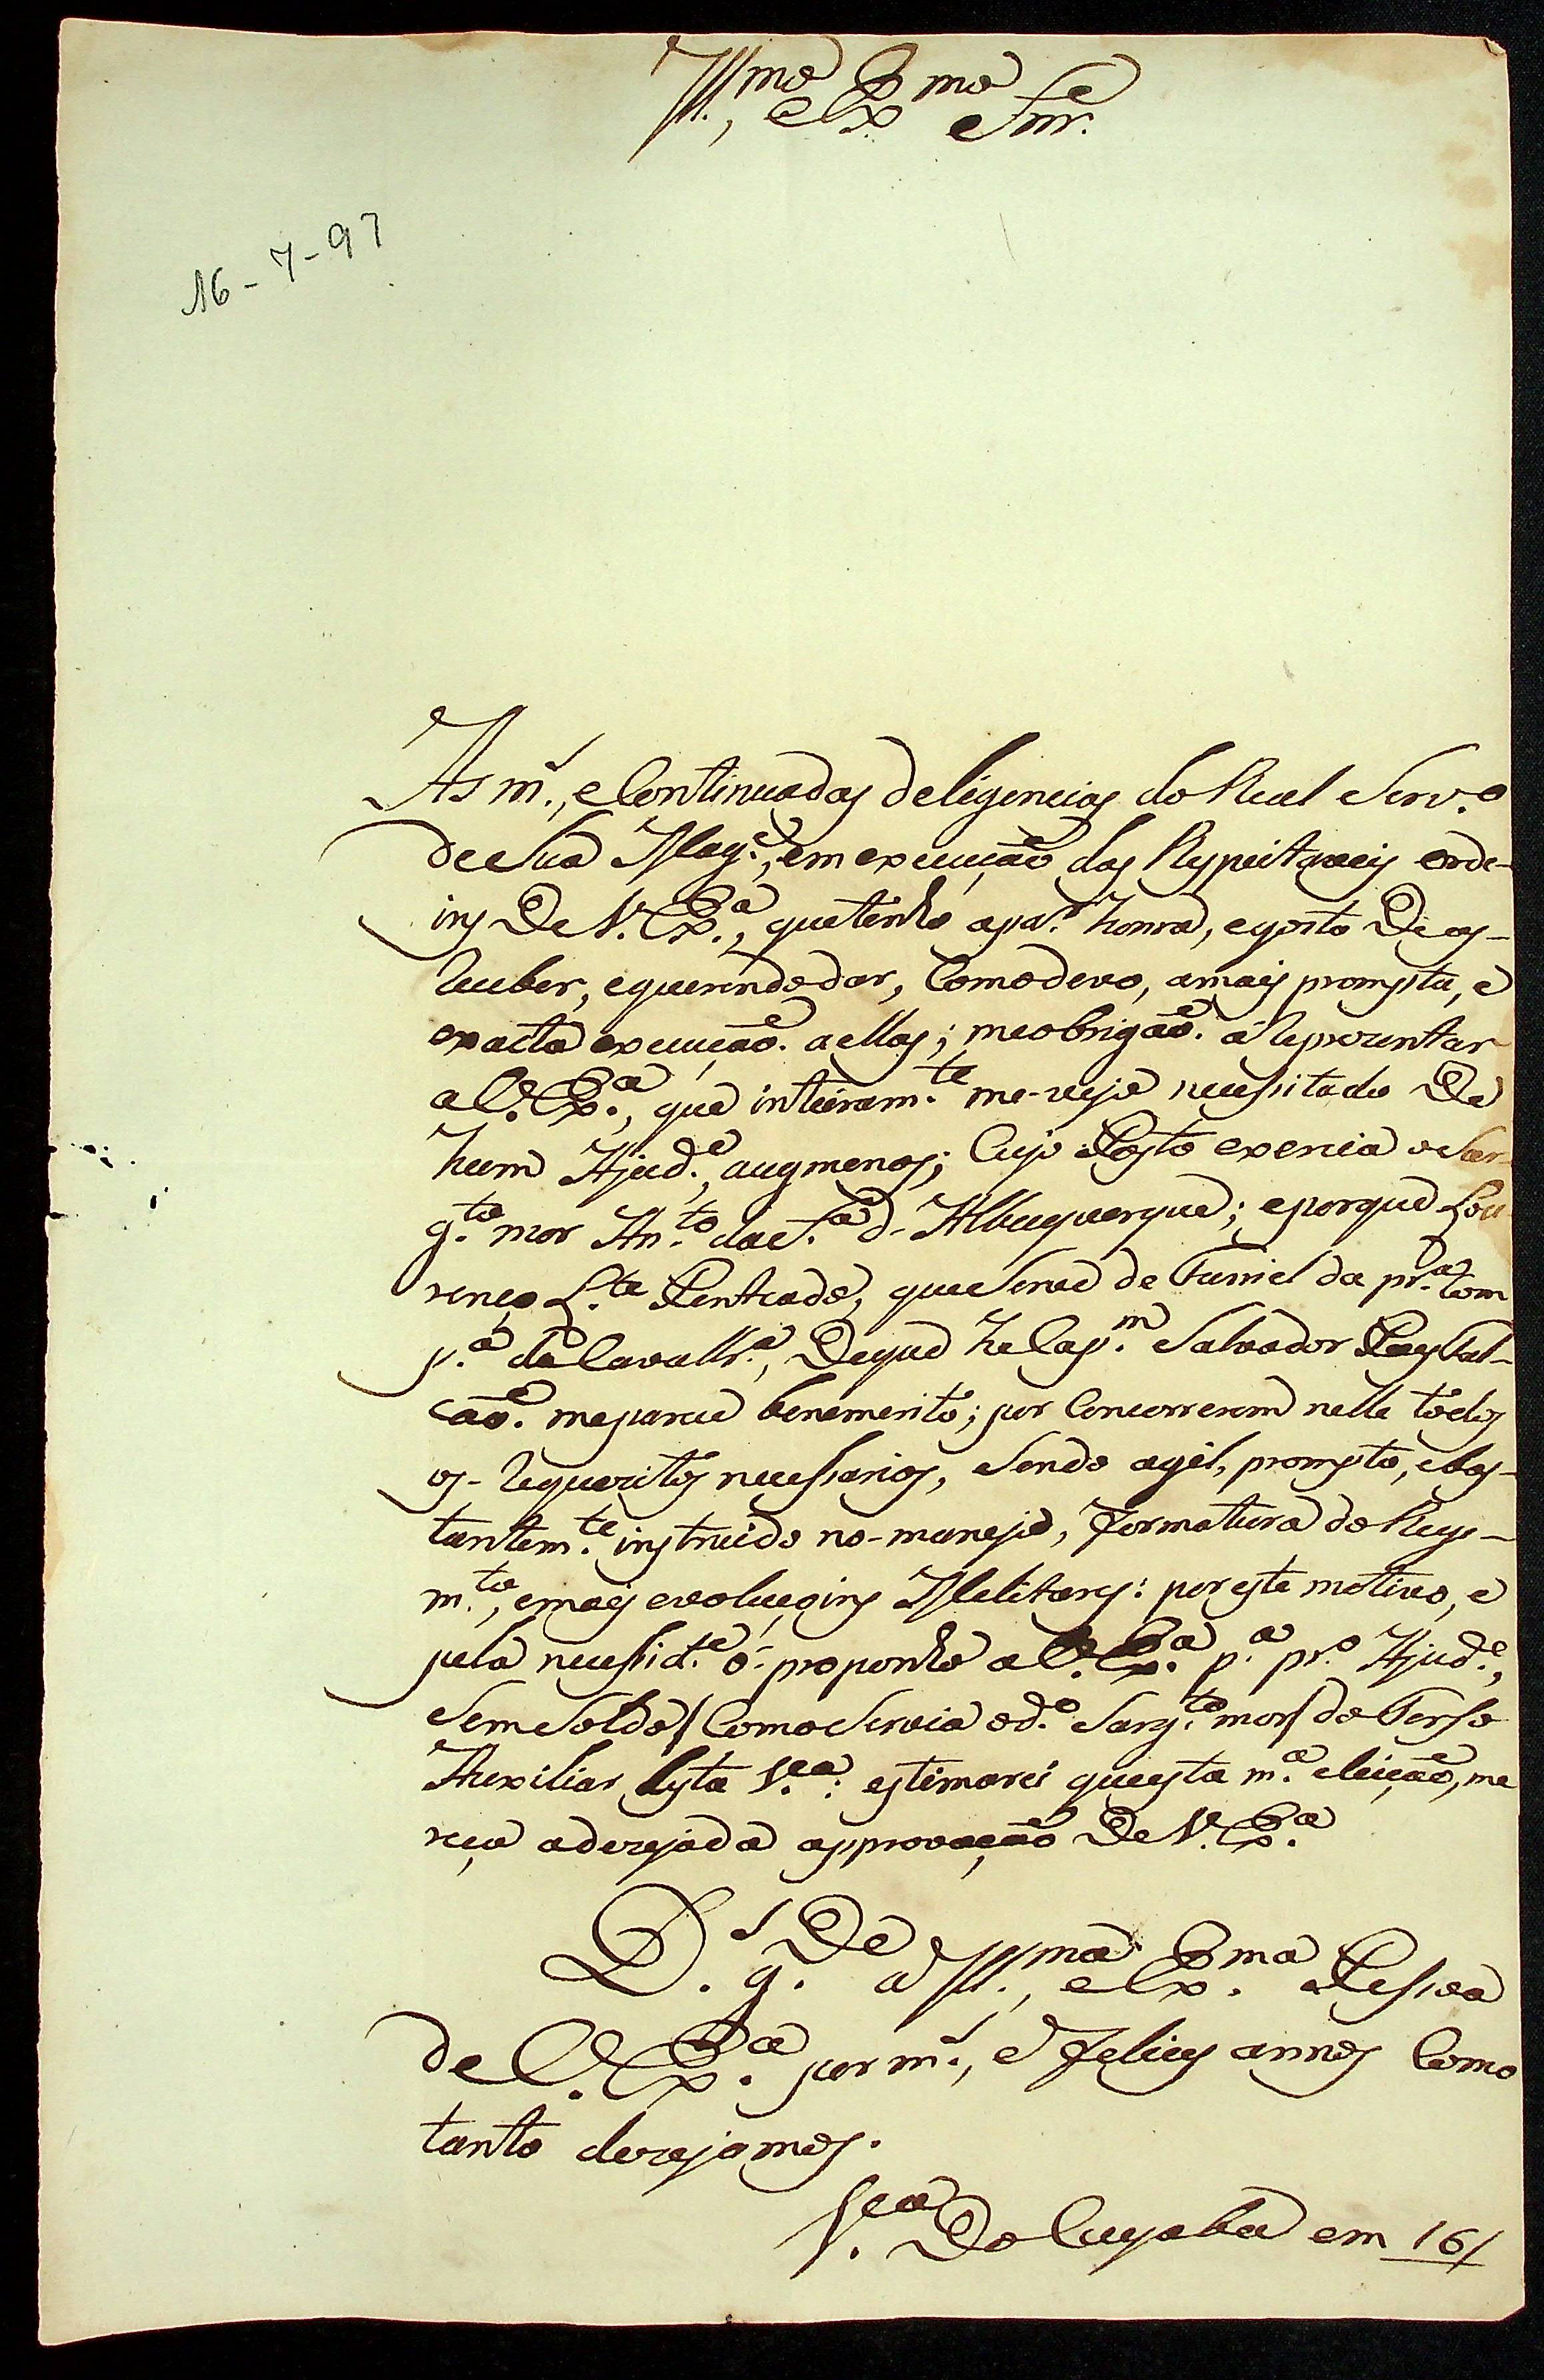 Ill.mo, e Ex.mo Snr.
16-7-97
As m.s, e Continuadas deligencias do Real Serv.o
de Sua Mag.e, em execução das Respeitaveis orde-
ins De V. Ex.a, que tenho apar.r honra, e gosto De as-
Receber, e querendo dar, Como devo, a mais prompta, e
exacta execução. a ellas; me obrigão. á Reprezentar
a V. Ex.a, que inteiram.te me-vejo necessitado De
hum Ajud.e, ao menos; Cujo Posto exercia o Sar-
g.to mor An.to da S.a d-Albuquerque; e porque Lou
renço L.te Penteado, que Serve de Furriel da pr.a Com
p.a de Cavallr.a, De que he Cap.m Salvador Paes Fal-
cão. me parece benemerito; por Concorrerem nelle todos
os-Requezitos necessarios, Sendo agil, prompto, e bas-
tantem.te instruido no-manejo, formatura do Regi-
m.to, e mais evoluçoins Melitares: por este motivo, e
pela necessid.e ó-proponho a V. Ex.a p.a pr.o Ajud.e,
Sem Soldo/ Como Servia o d.o Sarg.to mor/ do Terso
Auxiliar desta V.a: estimarei que esta m.a eleição, me
reça a dezejada approvação De V. Ex.a
D.s g.De a Ill.ma, e Ex.ma Pessoa
de V. Ex.a por m.s, e felices annos Como
tanto dezejamos.
V.a Do Cuyabá em 16/